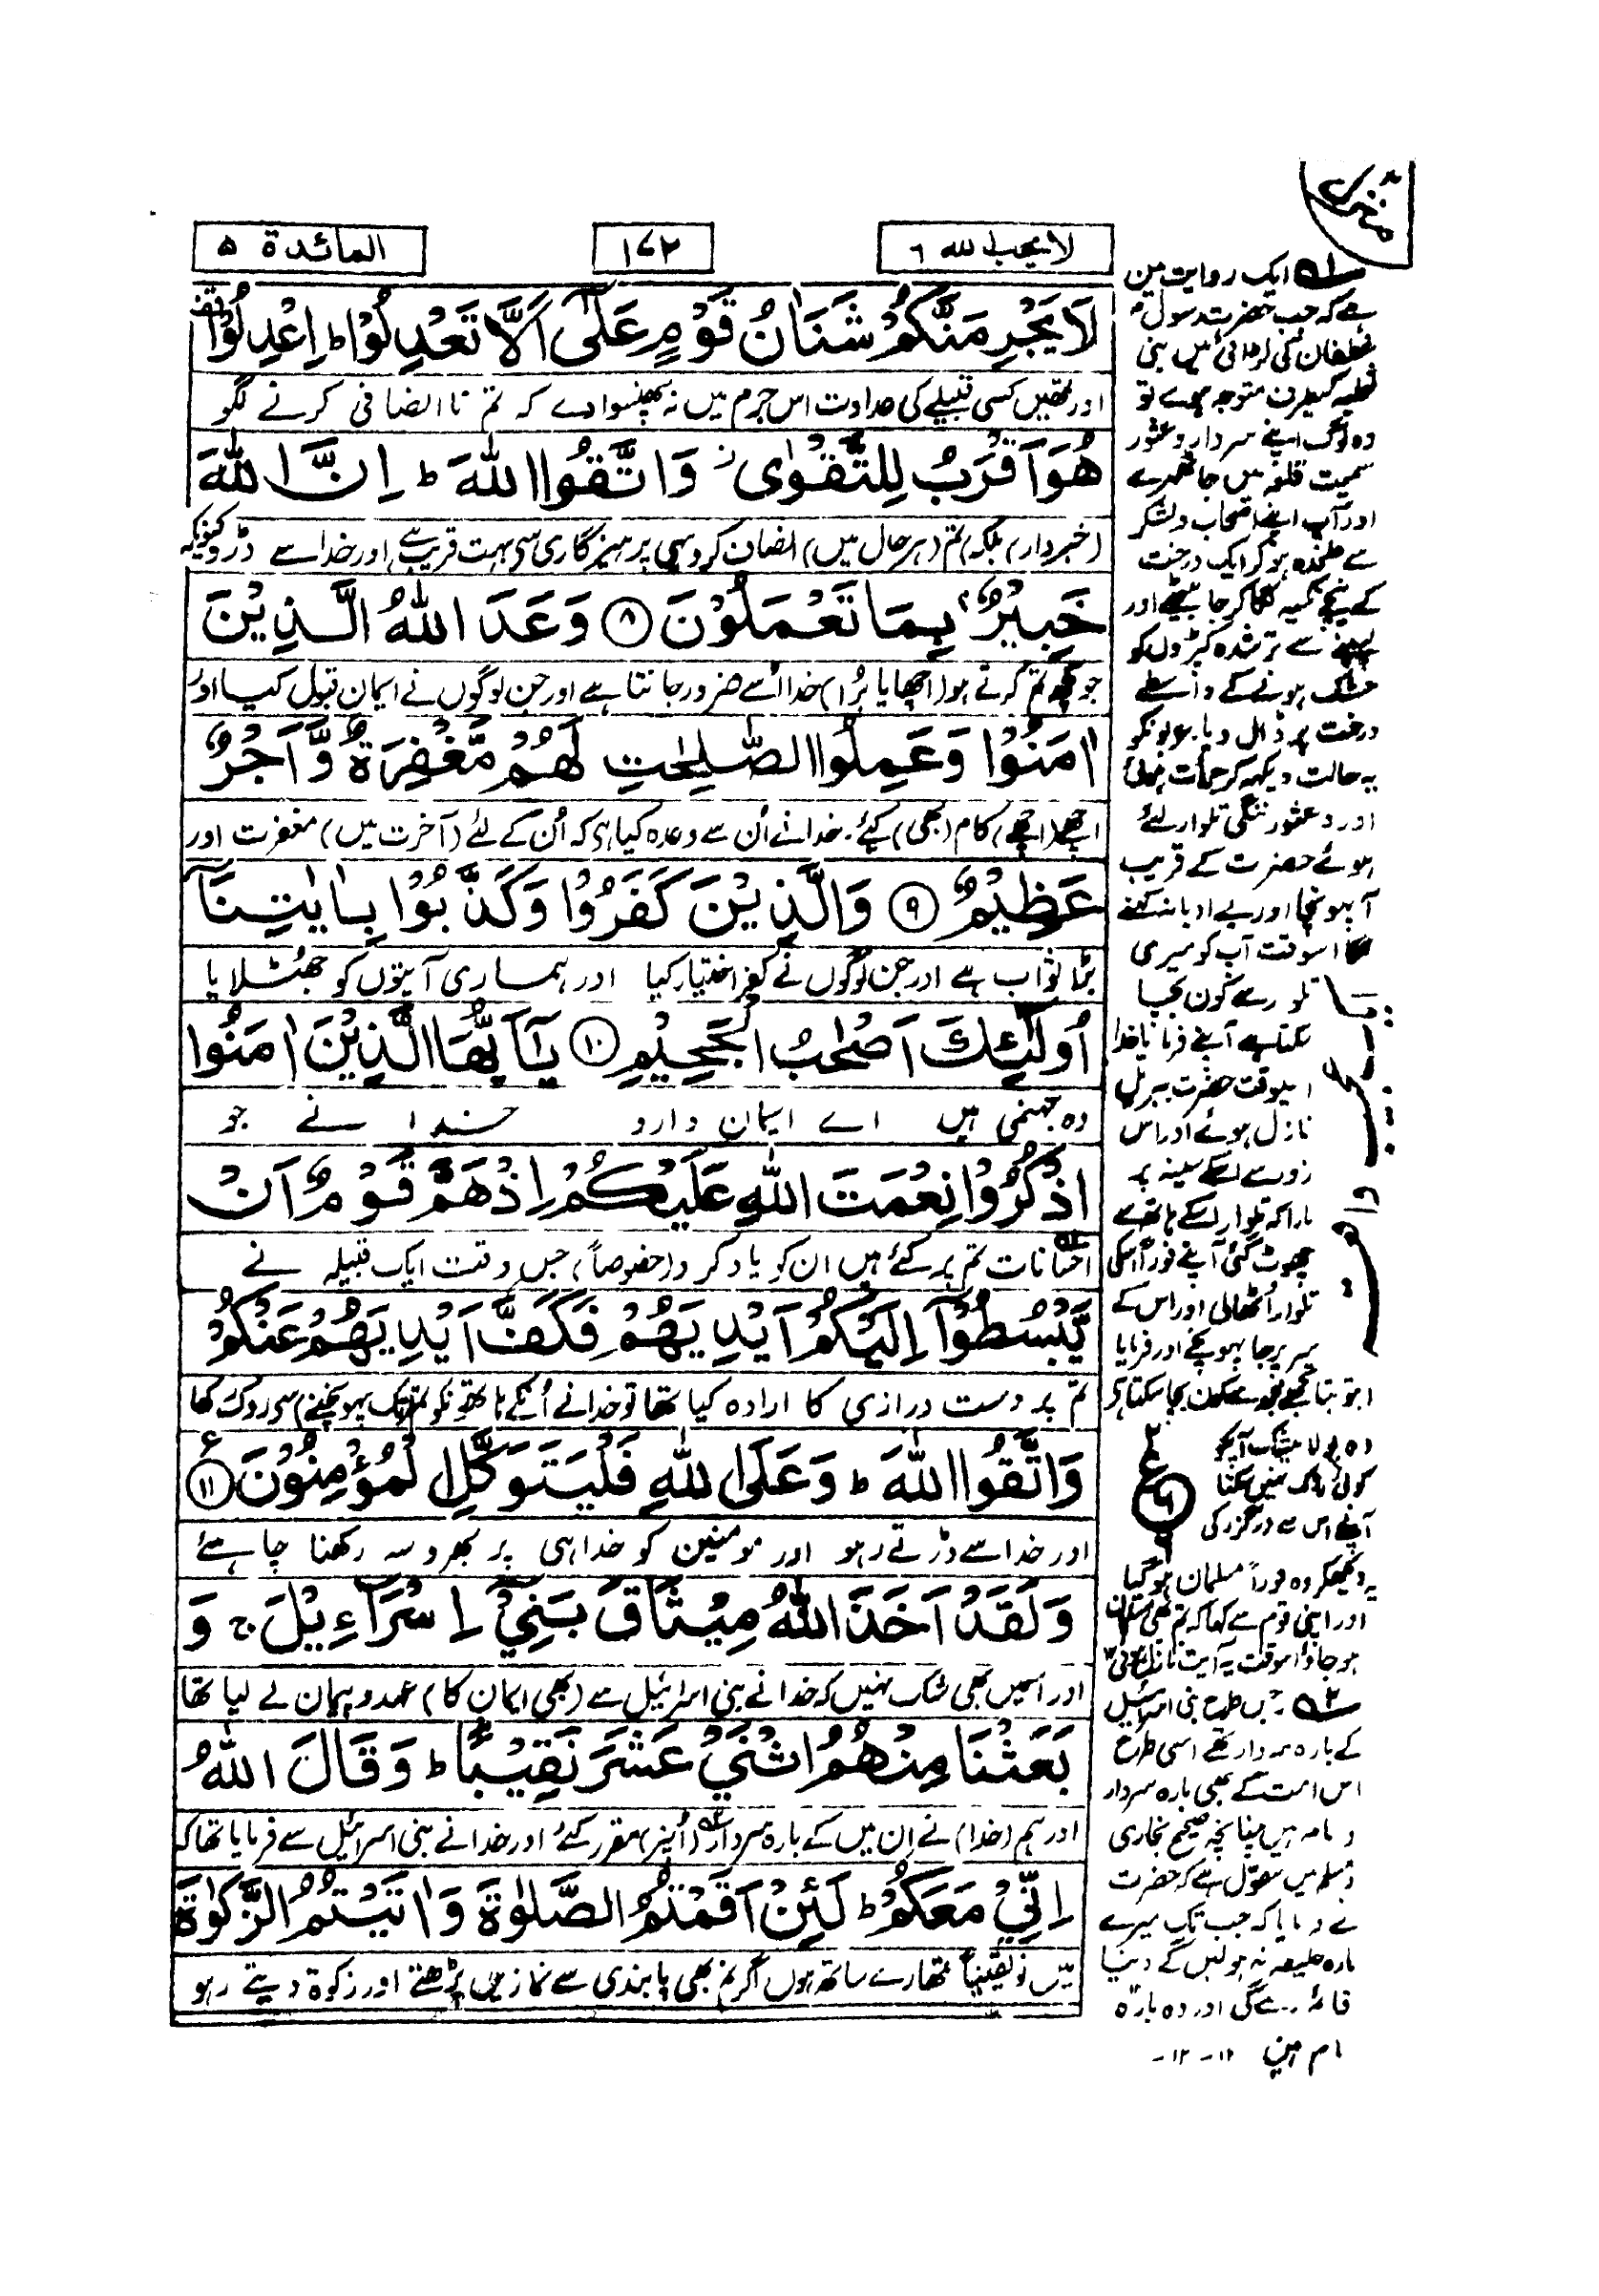 لا يحب لله ٦
١٧٢
المائدة ۵
لَا يَجْرِمَنَّكُمْ شَنَاٰنُ قَوْمٍ عَلٰٓى اَلَّا تَعْدِلُوْا ؕ اِعْدِلُوْا
اور تمھیں کسی قبیلے کی عداوت اس جرم میں نہ پھنسوا دے کہ تم نا انصافی کرنے لگو
هُوَ اَقْرَبُ لِلتَّقْوٰى ز وَ اتَّقُوا اللّٰهَ ؕ اِنَّ اللّٰهَ
(خبردار) بلکہ تم (ہر حال میں) انصاف کرو یہی پرہیزگاری سی بہت قریب ہے اور خدا سے ڈرو کیونکہ
خَبِيْرٌۢ بِمَا تَعْمَلُوْنَ ۝٨ وَعَدَ اللّٰهُ الَّذِيْنَ
جو کچھ تم کرتے ہو (اچھا یا بُرا) خدا اُسے ضرور جانتا ہے اور جن لوگوں نے ایمان قبول کیا اور
اٰمَنُوْا وَعَمِلُوا الصّٰلِحٰتِ لَهُمْ مَّغْفِرَةٌ وَّ اَجْرٌ
اچھے (اچھے) کام (بھی) کیئے۔ خدا نے اُن سے وعدہ کیا ہی کہ اُن کے لئے (آخرت میں) مغفرت اور
عَظِيْمٌ ۝٩ وَالَّذِيْنَ كَفَرُوْا وَكَذَّبُوْا بِاٰيٰتِنَآ
بڑا ثواب ہے اور جن لوگوں نے کفر اختیار کیا اور ہماری آیتوں کو جھٹلایا
اُولٰٓئِكَ اَصْحٰبُ الْجَحِيْمِ ۝١٠ يٰٓاَيُّهَا الَّذِيْنَ اٰمَنُوا
وہ جہنمی ہیں اے ایمان دارو خدا نے جو
اذْكُرُوْا نِعْمَتَ اللّٰهِ عَلَيْكُمْ اِذْ هَمَّ قَوْمٌ اَنْ
احسانات تم پر کئے ہیں ان کو یاد کرو (خصوصاً) جس وقت ایک قبیلہ نے
يَّبْسُطُوْٓا اِلَيْكُمْ اَيْدِيَهُمْ فَكَفَّ اَيْدِيَهُمْ عَنْكُمْ
تم پر دست درازی کا ارادہ کیا تھا تو خدا نے اُنکے ہاتھونکو تم تک پہونچنے سی روک رکھا
وَاتَّقُوا اللّٰهَ ؕ وَعَلَى اللّٰهِ فَلْيَتَوَكَّلِ لْمُؤْمِنُوْنَ ۝١١ ع
اور خدا سے ڈرتے رہو اور مومنین کو خدا ہی پر بھروسہ رکھنا چاہیئے
وَلَقَدْ اَخَذَ اللّٰهُ مِيْثَاقَ بَنِيْٓ اِسْرَآءِيْلَ ج وَ
اور اسمیں بھی شک نہیں کہ خدا نے بنی اسرائیل سے (بھی ایمان کا) عہدو پیمان لے لیا تھا
بَعَثْنَا مِنْهُمُ اثْنَيْ عَشَرَ نَقِيْبًا ؕ وَقَالَ اللّٰهُ
اور ہم (خدا) نے اِن میں کے بارہ سردار (اُنپر) مقرر کئے اور خدا نے بنی اسرائیل سے فرمایا تھا کہ
اِنِّيْ مَعَكُمْ ؕ لَئِنْ اَقَمْتُمُ الصَّلٰوةَ وَاٰتَيْتُمُ الزَّكٰوةَ
میں تو یقیناً تمھارے ساتھ ہوں اگر تم بھی پابندی سے نمازیں پڑھتے اور زکوٰۃ دیتے رہو
ایک روایت میں
ہے کہ جب حضرت رسولؐ
غطفان کی لڑائی میں بنی
کیطرف متوجہ ہوے تو
وہ لوگ اپنے سردار دعثور
سمیت قلعہ میں جا ٹھہرے
اور آپ اپنے اصحاب و لشکر
سے علٰحدہ ہو کر ایک درخت
کے نیچے تکیہ لگا کر جا بیٹھے اور
سے تر شدہ کپڑوں کو
خشک ہونے کے واسطے
درخت پر ڈال دیا۔
یہ حالت دیکھ کر جرأت ہوئی
اور دعثور ننگی تلوار لئے
ہوئے حضرت کے قریب
آ پہونچا اور بے ادبانہ کہنے
لگا اسوقت آپ کو میری
تلوار سے کون بچا
سکتا ہے آپنے فرمایا خدا
اسیوقت حضرت جبریل
نازل ہوئے اور اس
زور سے اسکے سینہ پر
مارا کہ تلوار اسکے ہاتھ سے
چھوٹ گئی آپنے فوراً اسکی
تلوار اُٹھا لی اور اس کے
سر پر جا پہونچے اور فرمایا
اب تو بتا تجھے مجھ سے کون بچا سکتا ہی
وہ بولا بیشک آپکو
کوئی روک نہیں سکتا
آپنے اس سے درگزر کی
یہ دیکھکر وہ فوراً مسلمان ہوگیا
اور اپنی قوم سے کہا کہ تم بھی مسلمان
ہو جاؤ اسوقت یہ آیت نازل ہوئی
جس طرح بنی اسرائیل
کے بارہ سردار تھے اسی طرح
اس امت کے بھی بارہ سردار
و امام ہیں چنانچہ صحیح بخاری
و مسلم میں منقول ہے کہ حضرت
نے فرمایا کہ جب تک میرے
بارہ خلیفہ نہ ہولیں گے دنیا
قائم رہے گی اور وہ بارہ
امام ہیں ۱۲-۱۲-